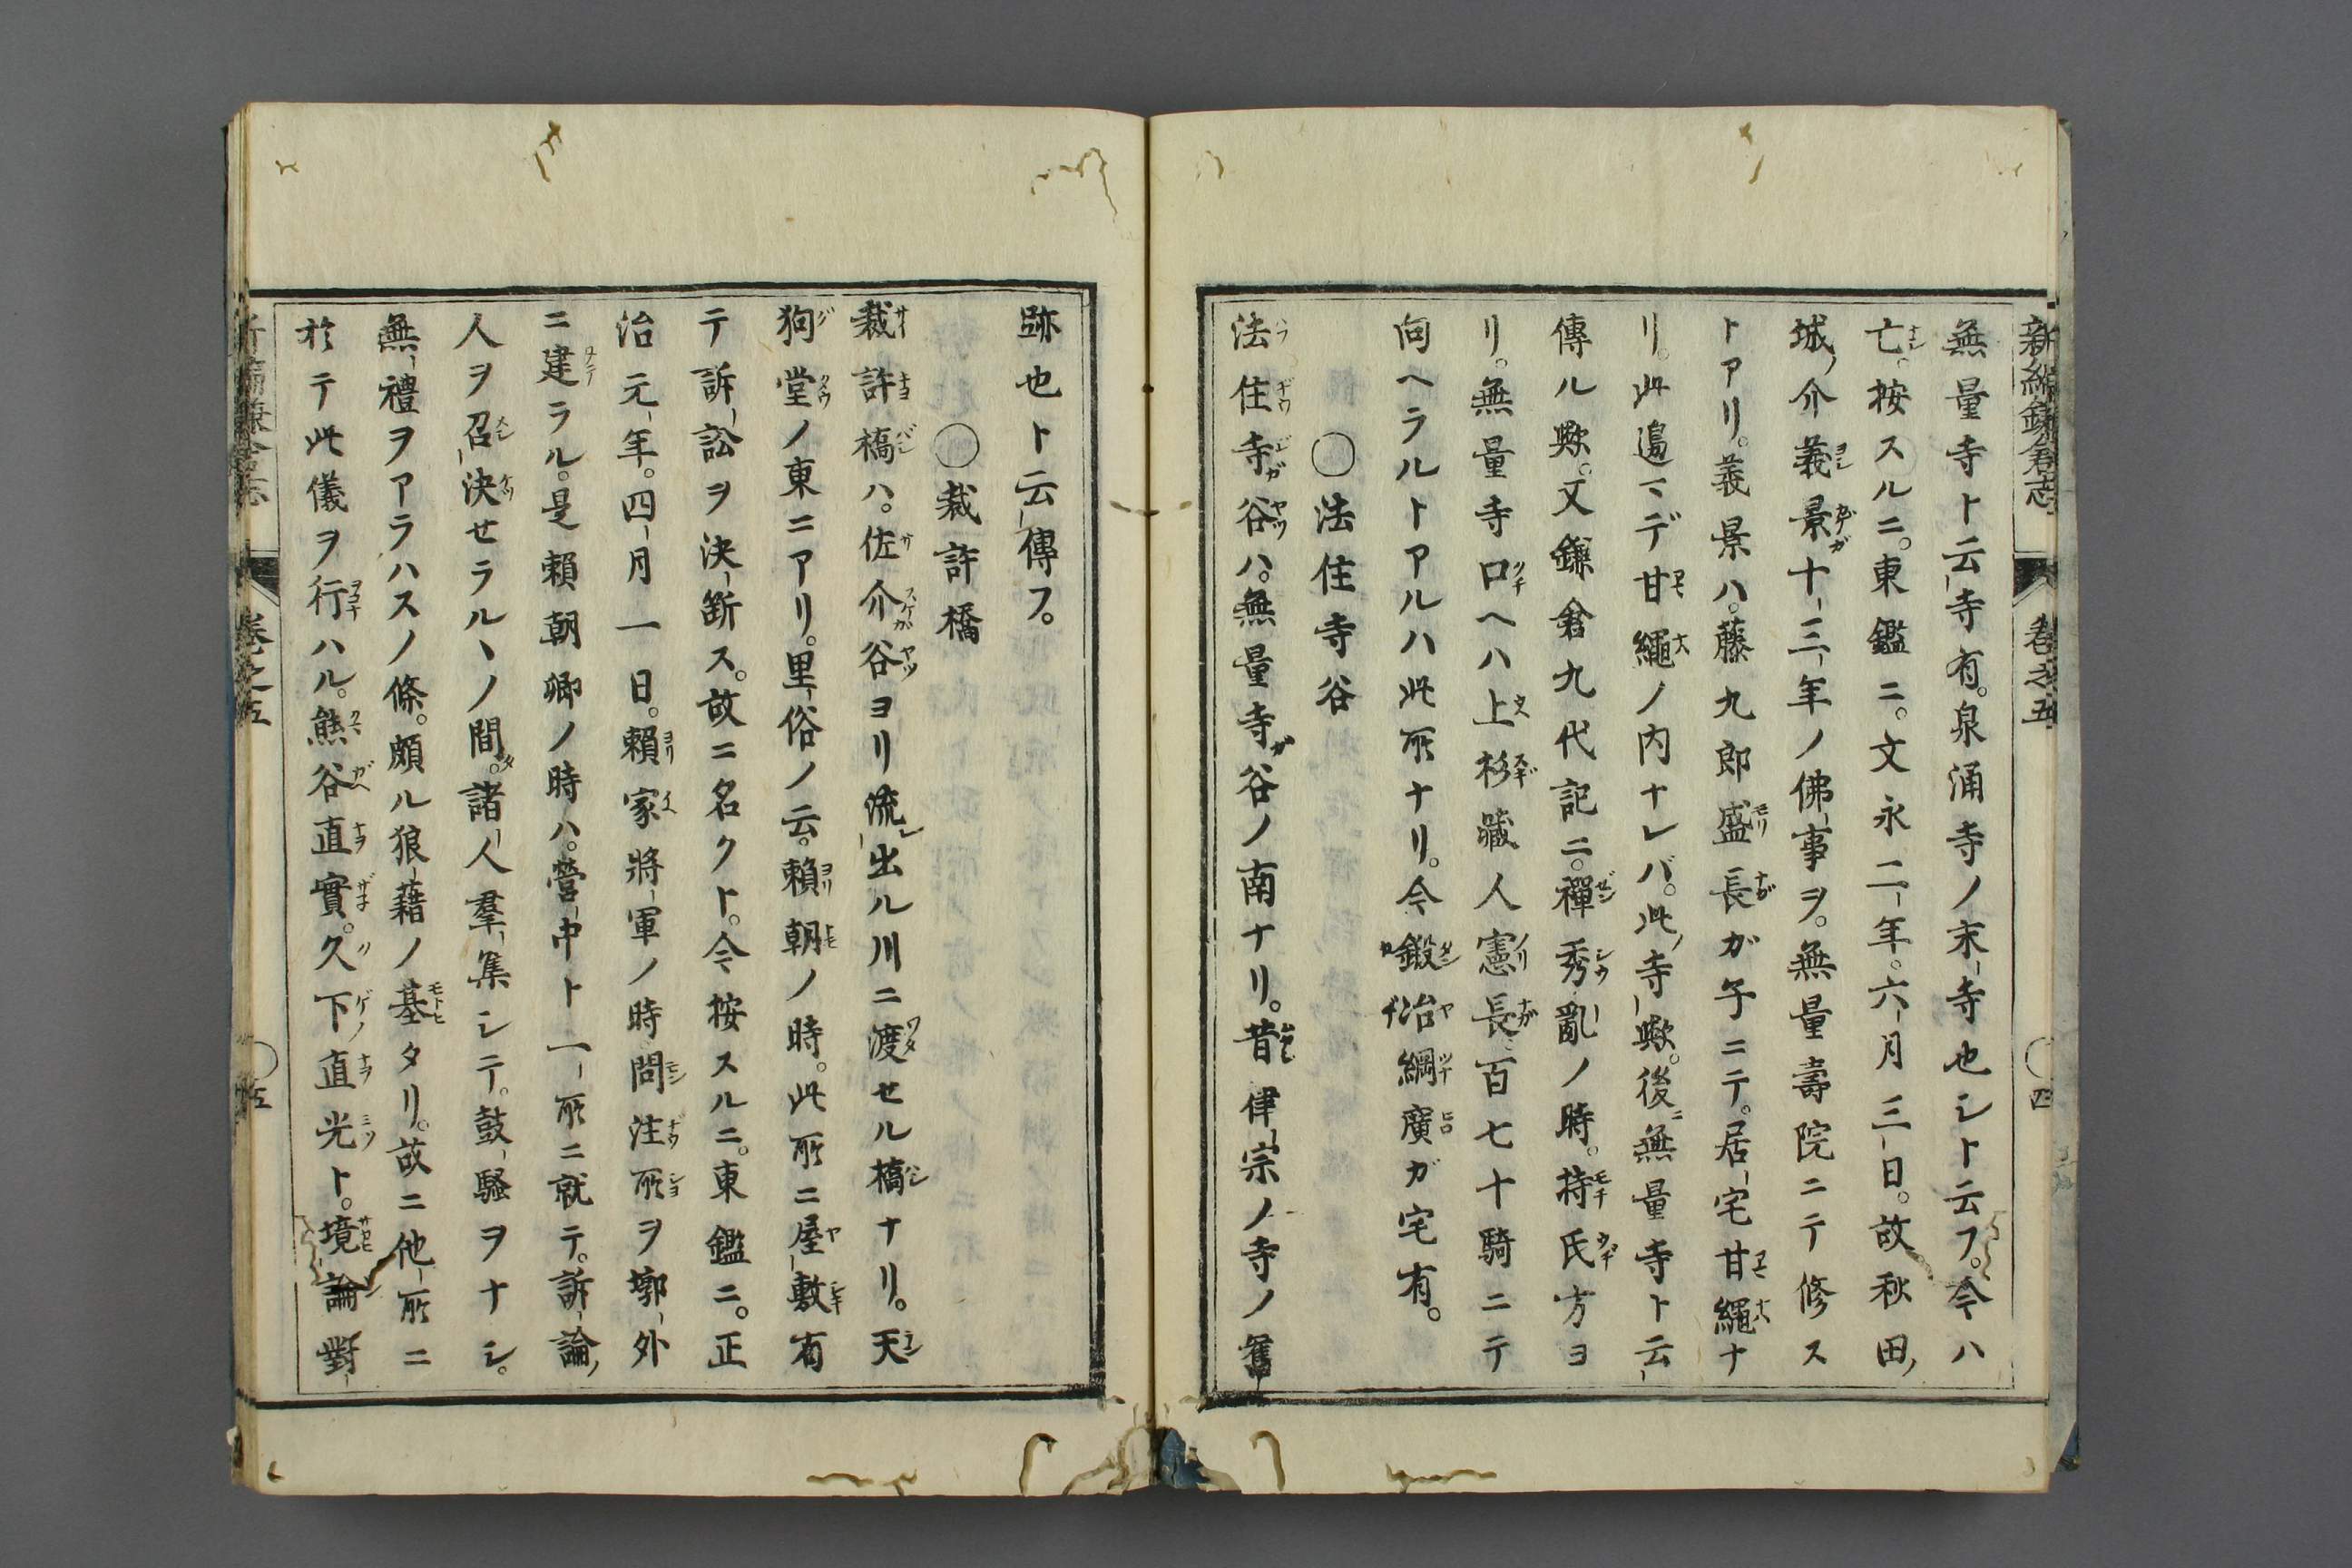 新編鎌倉志 卷之五 〇四
無量寺ト云寺有。泉涌寺ノ末寺也シト云フ。今ハ
亡。按スルニ。東鑑ニ。文永二年。六月三日。故秋田
城介義景十三年ノ佛事ヲ。無量壽院ニテ修ス
トアリ。義景ハ。藤九郎盛長ガ子ニテ。居宅甘繩ナ
リ。此邉マデ甘繩ノ内ナレバ。此寺歟。後ニ無量寺ト云
傳ル歟。又鎌倉九代記ニ。禪秀亂ノ時。持氏方ヨ
リ。無量寺口ヘハ上杉藏人憲長百七十騎ニテ
向ヘラルトアルハ此所ナリ。今鍛冶綱廣ガ宅有。
〇法住寺谷
法住寺谷ハ。無量寺ガ谷ノ南ナリ。昔律宗ノ寺ノ舊
跡也ト云傳フ。
〇裁許橋
裁許橋ハ。佐介谷ヨリ流レ出ル川ニ渡セル橋ナリ。天
狗堂ノ東ニアリ。里俗ノ云。賴朝ノ時。此所ニ屋敷有
テ訴訟ヲ決斷ス。故ニ名クト。今按スルニ。東鑑ニ。正
治元年。四月一日。賴家將軍ノ時問注所ヲ墎外
ニ建ラル。是賴朝卿ノ時ハ。營中ト一所ニ就テ。訴論ノ
人ヲ召決セラルヽノ間。諸人羣集シテ。鼓騷ヲナシ。
無禮ヲアラハスノ條。頗ル狼藉ノ基タリ。故ニ他所ニ
於テ此儀ヲ行ハル。熊谷直實。久下直光ト。境論對
新編鎌倉志 卷之五 〇五